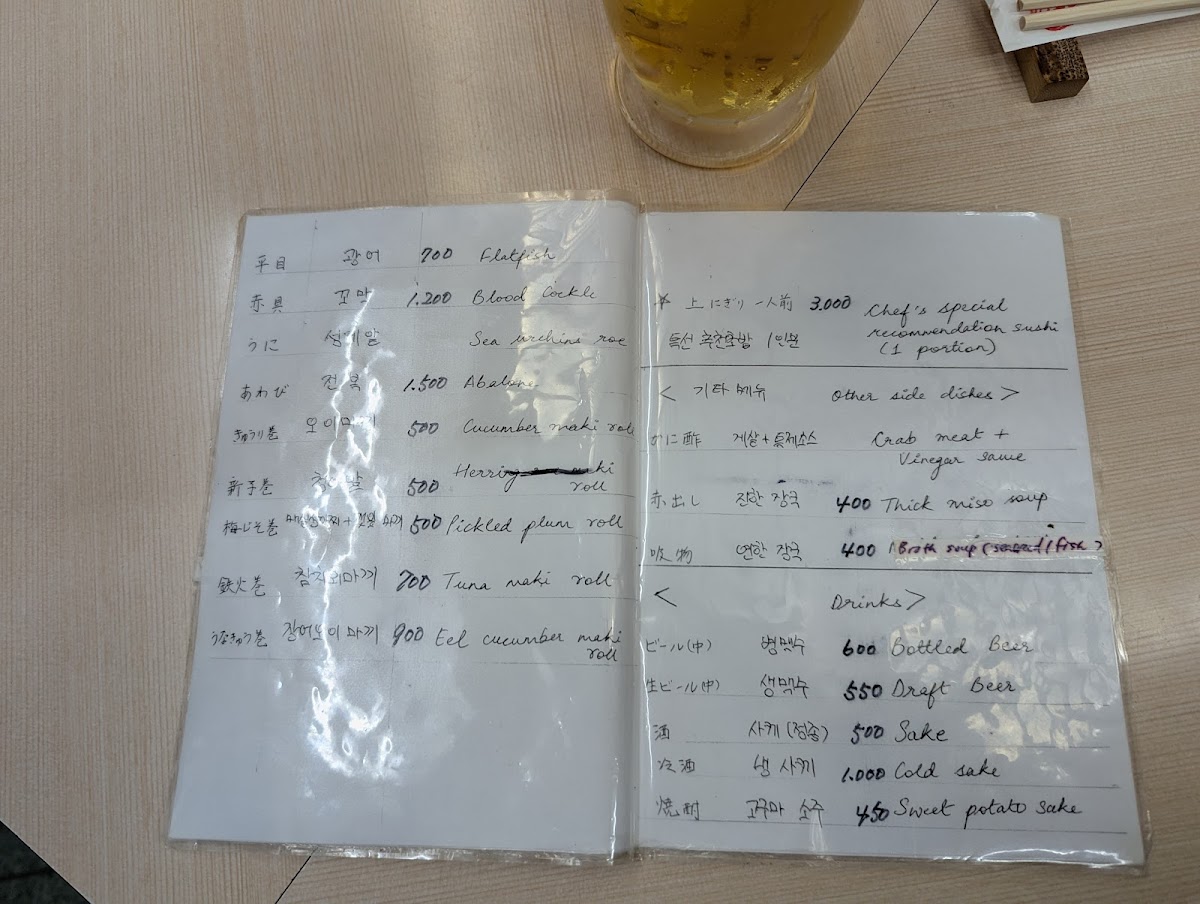 平目 광어 700 Flatfish
赤貝 꼬막 1.200 Blood Cockle
うに 성게알 Sea urchins roe
あわび 전복 1.500 Abalone
きゅうり巻 오이마끼 500 Cucumber maki roll
新子巻 500 Herring
roll
梅しそ巻 500 Pickled plum roll
鉄火巻 참치회마끼 700 Tuna maki roll
うなきゅう巻 장어오이마끼 900 Eel cucumber maki
roll
上にぎり一人前 3.000 Chef's special
recommendation sushi
특선 추천초밥 1인분 (1 portion)
< 기타메뉴 Other side dishes >
かに酢 게살+특제소스 Crab meat +
Vinegar sauce
赤出し 진한 장국 400 Thick miso soup
吸物 연한 장국 400 (Broth soup (/fish)
< Drinks >
ビール(中) 병맥주 600 Bottled Beer
生ビール(中) 생맥주 550 Draft Beer
酒 사케(정종) 500 Sake
冷酒 냉 사케 1.000 Cold sake
焼酎 고구마 소주 450 Sweet potato sake